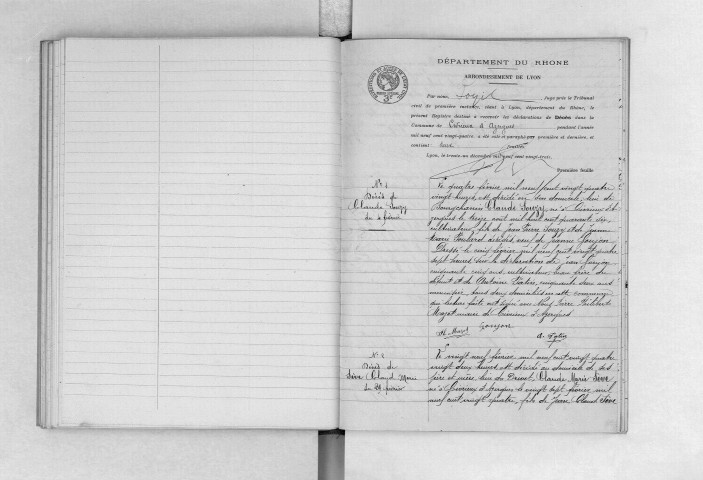 DÉPARTEMENT DU RHONE
ARRONDISSEMENT DE LYON
Par nous, Juge près le Tribunal
civil de première instance, séant à Lyon, département du Rhône, le
présent Registre destiné à recevoir les déclarations de Décès dans la
Commune de Civrieux d'Azergues pendant l'année
mil neuf cent vingt-quatre a été coté et paraphé par première et dernière, et
contient
Lyon, le trente-un décembre mil neuf cent vingt-trois.
Première feuille
N° 1
Décès de
Claude Souzy
du 4 février
Le quatre février mil neuf cent vingt quatre
vingt heures, est décédé en son domicile, lieu de
Claude Souzy, né à Civrieux d'A-
zergues le treize août mil huit cent quarante
cultivateur, fils de Jean Pierre Souzy et de Jeanne
décédés, veuf de Jeanne Gonzon
Dressé le cinq février mil neuf cent vingt quatre
sept heures sur la déclaration de Jean Gonzon
cinquante cinq ans cultivateur, beau frère du
défunt et de Antoine cinquante deux ans
tous deux domiciliés en cette commune
qui lecture faite ont signé avec Nous Pierre Philibert
Mazot maire de Civrieux d'Azergues
Ph. Mazot Gonzon
N° 2
Décès de
Sève Claude Marie
du 29 février
Le vingt neuf février mil neuf cent vingt quatre
vingt deux heures est décédé au domicile de ses
père et mère, lieu de Claude Marie Sève
né à Civrieux d'Azergues le vingt sept février mil
neuf cent vingt quatre, fils de Jean Claude Sève